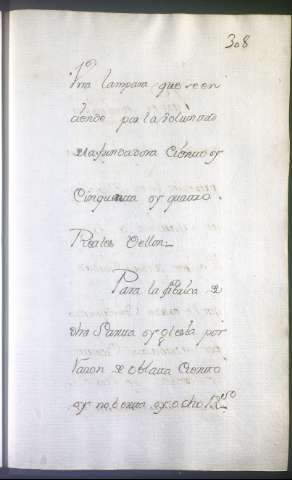 308
Una lampara que se en
ciende por la voluntad
de la fundadora Ciento y
Cinquenta y quatro
Reales Vellon
Para la fabrica de
dha Santa Yglesia por
razon de oblata Ciento
y nobenta y ocho Rs